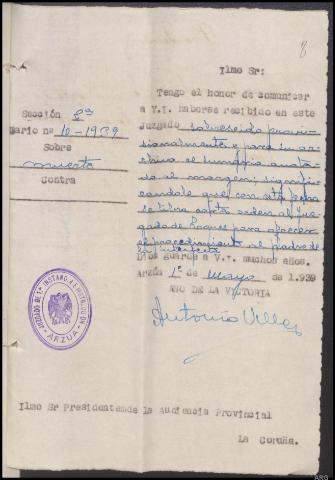 8
Ilmo Sr:
Tengo el honor de comunicar
a V.I. haberse recibido en este
Juzgado sobreseido provi-
sionalmente y para su ar-
chivo el sumario anota-
do al margen, signifi-
candole que con esta fecha
se libra carta orden al Juz-
gado de para ofrecer
el procedimiento al padre de
la interfecta
Dios guarde a V.I. muchos años.
Arzúa 1º de mayo de 1.939
AÑO DE LA VICTORIA
Antonio Villar
Sección 2ª
nario nº 10-1939
Sobre
muerte
Contra
JUZGADO DE 1ª INSTANCIA E INSTRUCCION DE
ARZUA
Ilmo Sr Presidente de la Audiencia Provincial
La Coruña.
ARG